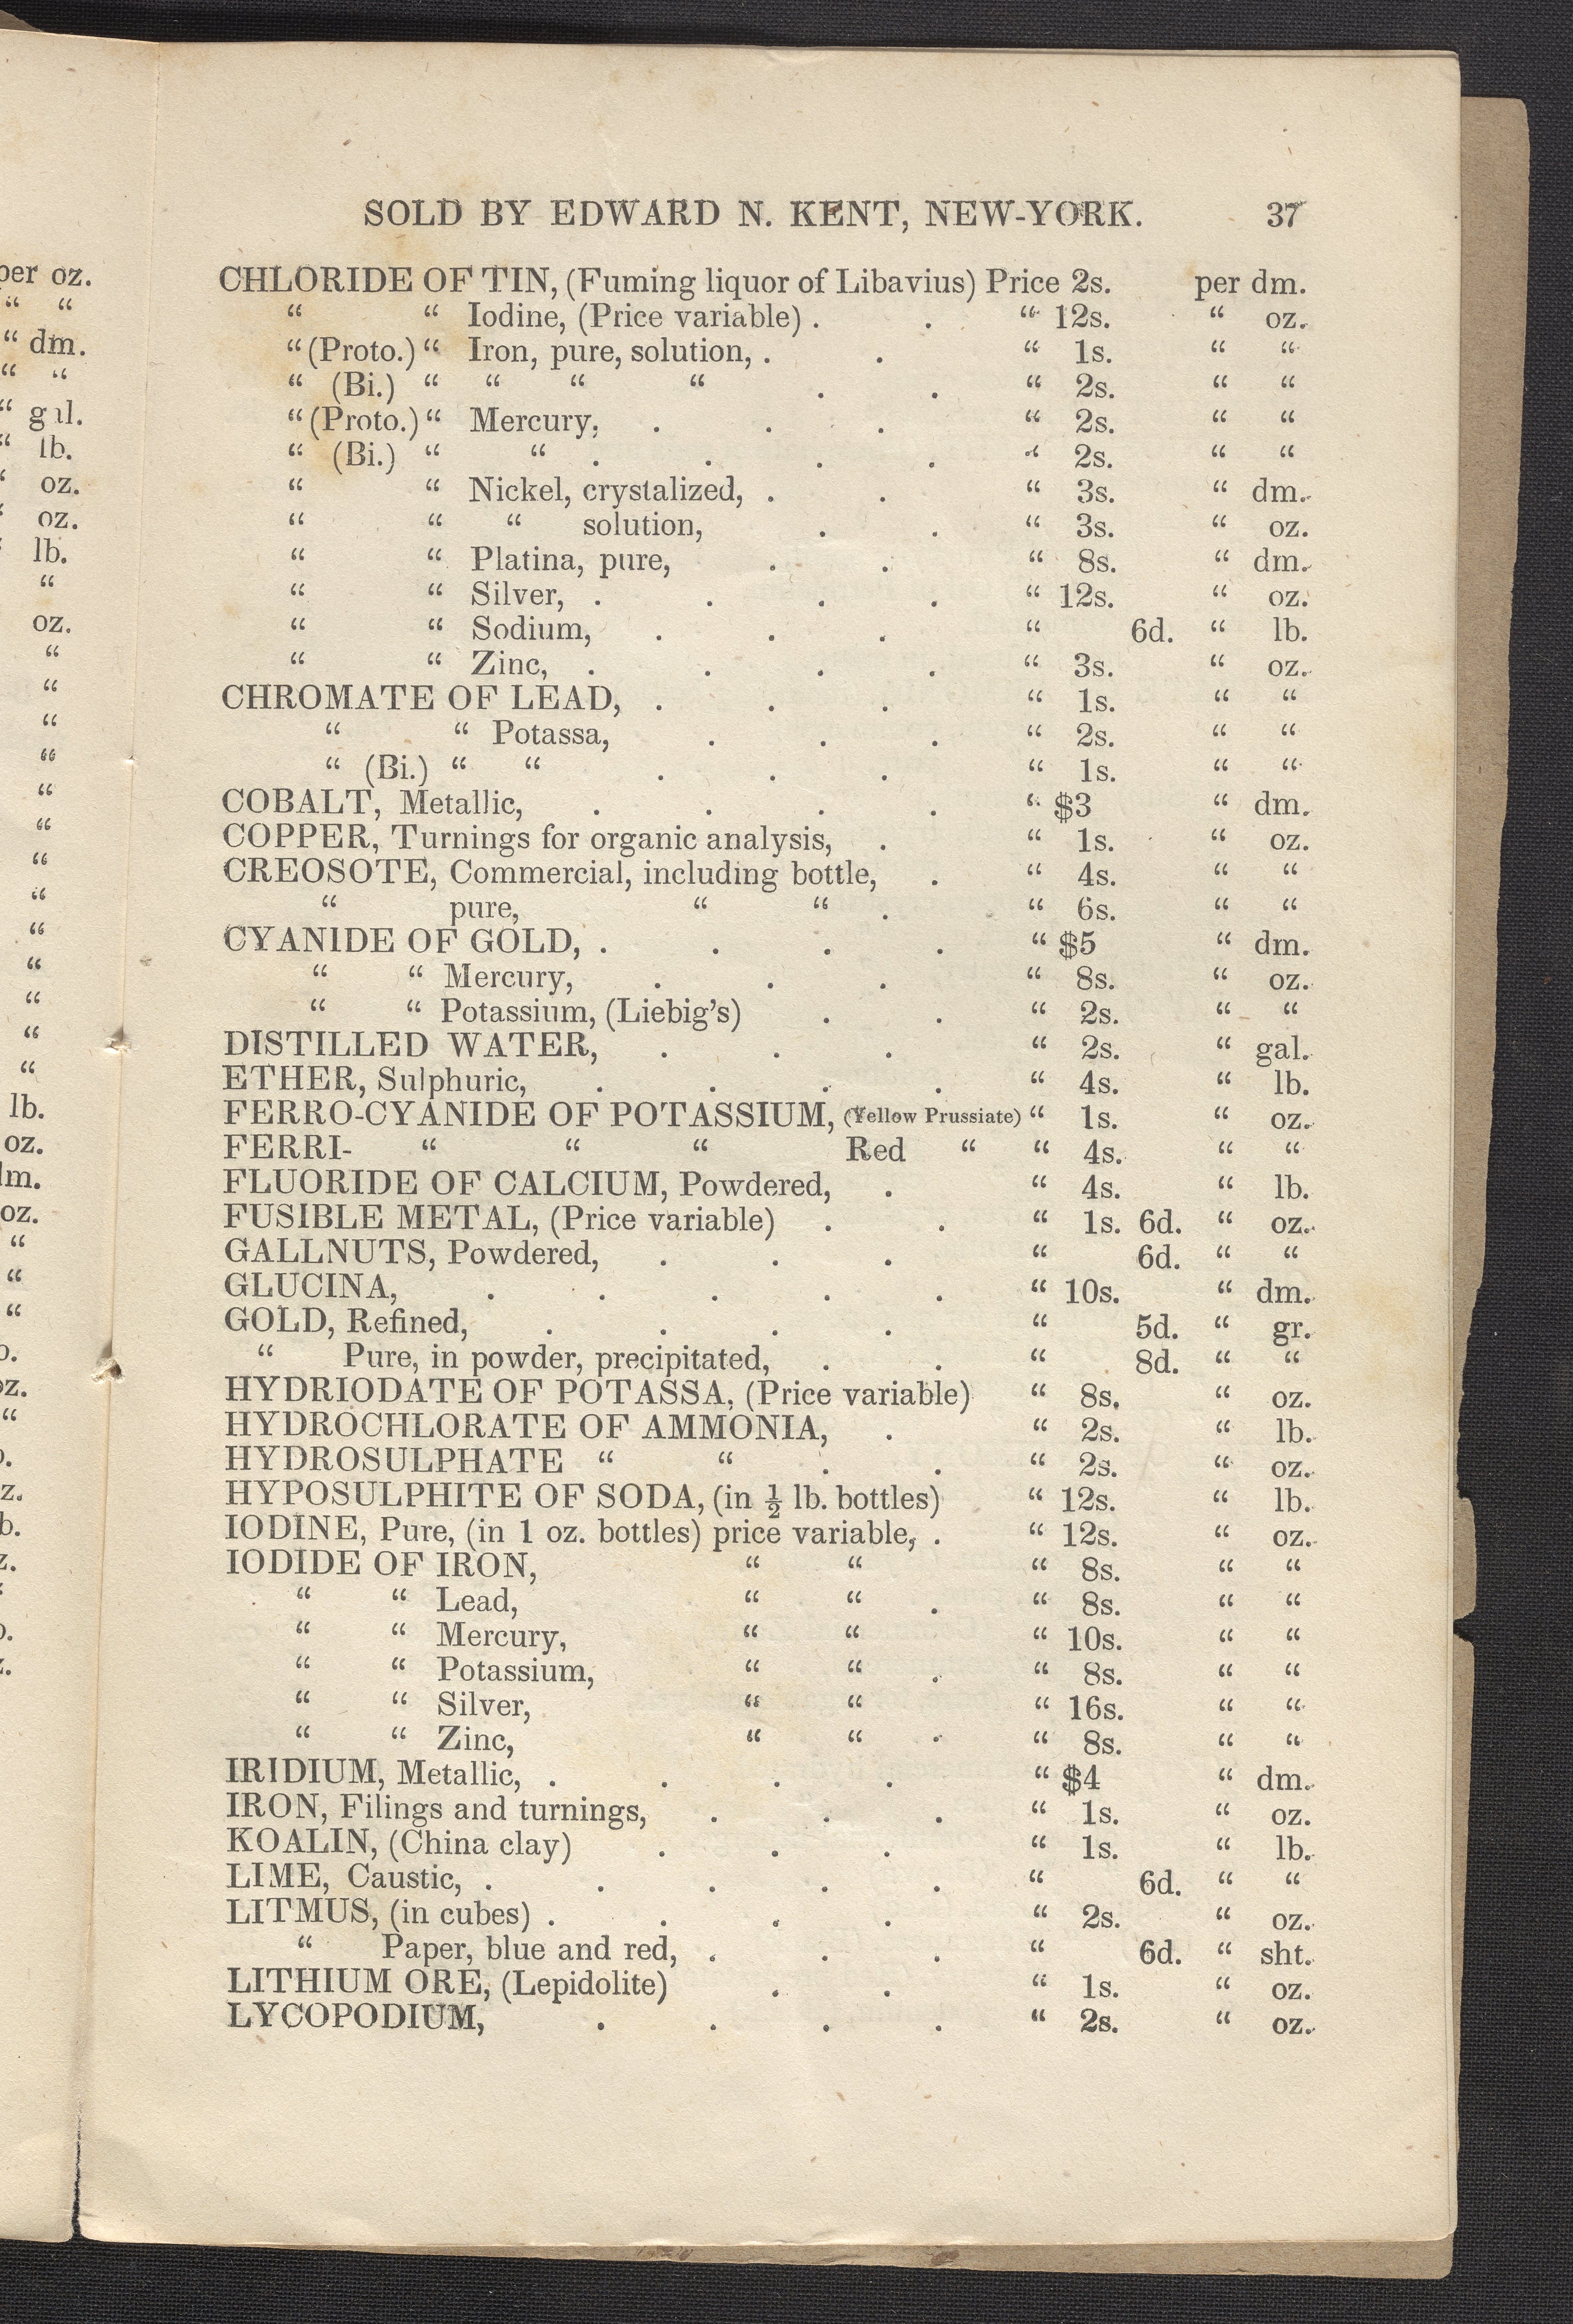 SOLD BY EDWARD N. KENT, NEW-YORK. 37
CHLORIDE OF TIN, (Fuming liquor of Libavius) Price 2s. per dm.
“ “ Iodine, (Price variable) . . “ 12s. “ oz.
“ (Proto.) “ Iron, pure, solution, . . “ 1s. “ “
“ (Bi.) “ “ “ “ . . “ 2s. “ “
“ (Proto.) “ Mercury, . . . “ 2s. “ “
“ (Bi.) “ “ . . . . “ 2s. “ “
“ “ Nickel, crystalized, . . “ 3s. “ dm.
“ “ “ solution, . . “ 3s. “ oz.
“ “ Platina, pure, . . “ 8s. “ dm.
“ “ Silver, . . . . “ 12s. “ oz.
“ “ Sodium, . . . “ 6d. “ lb.
“ “ Zinc, . . . . “ 3s. “ oz.
CHROMATE OF LEAD, . . . “ 1s. “ “
“ “ Potassa, . . . “ 2s. “ “
“ (Bi.) “ “ . . . “ 1s. “ “
COBALT, Metallic, . . . . “ $3 “ dm.
COPPER, Turnings for organic analysis, . “ 1s. “ oz.
CREOSOTE, Commercial, including bottle, . “ 4s. “ “
“ pure, “ “ . “ 6s. “ “
CYANIDE OF GOLD, . . . . “ $5 “ dm.
“ “ Mercury, . . . “ 8s. “ oz.
“ “ Potassium, (Liebig’s) . . “ 2s. “ “
DISTILLED WATER, . . . “ 2s. “ gal.
ETHER, Sulphuric, . . . . “ 4s. “ lb.
FERRO-CYANIDE OF POTASSIUM, (Yellow Prussiate) “ 1s. “ oz.
FERRI- “ “ “ Red “ “ 4s. “ “
FLUORIDE OF CALCIUM, Powdered, . “ 4s. “ lb.
FUSIBLE METAL, (Price variable) . . “ 1s. 6d. “ oz.
GALLNUTS, Powdered, . . . “ 6d. “ “
GLUCINA, . . . . . “ 10s. “ dm.
GOLD, Refined, . . . . “ 5d. “ gr.
“ Pure, in powder, precipitated, . . “ 8d. “ “
HYDRIODATE OF POTASSA, (Price variable) “ 8s. “ oz.
HYDROCHLORATE OF AMMONIA, . “ 2s. “ lb.
HYDROSULPHATE “ “ . . “ 2s. “ oz.
HYPOSULPHITE OF SODA, (in ½ lb. bottles) “ 12s. “ lb.
IODINE, Pure, (in 1 oz. bottles) price variable, . “ 12s. “ oz.
IODIDE OF IRON, “ “ “ 8s. “ “
“ “ Lead, “ “ . “ 8s. “ “
“ “ Mercury, “ “ “ 10s. “ “
“ “ Potassium, “ “ . “ 8s. “ “
“ “ Silver, “ “ “ 16s. “ “
“ “ Zinc, “ “ . “ 8s. “ “
IRIDIUM, Metallic, . . . . “ $4 “ dm.
IRON, Filings and turnings, . . . “ 1s. “ oz.
KOALIN, (China clay) . . . “ 1s. “ lb.
LIME, Caustic, . . . . . “ 6d. “ “
LITMUS, (in cubes) . . . . “ 2s. “ oz.
“ Paper, blue and red, . . . “ 6d. “ sht.
LITHIUM ORE, (Lepidolite) . . “ 1s. “ oz.
LYCOPODIUM, . . . . “ 2s. “ oz.